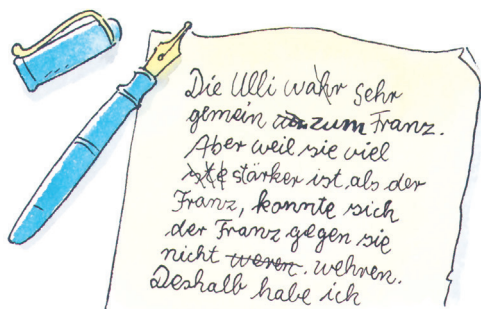 Die Ulli wahr sehr
gemein zum Franz.
Aber weil sie viel
stärker ist, als der
Franz, konnte sich
der Franz gegen sie
nicht weren. wehren.
Deshalb habe ich